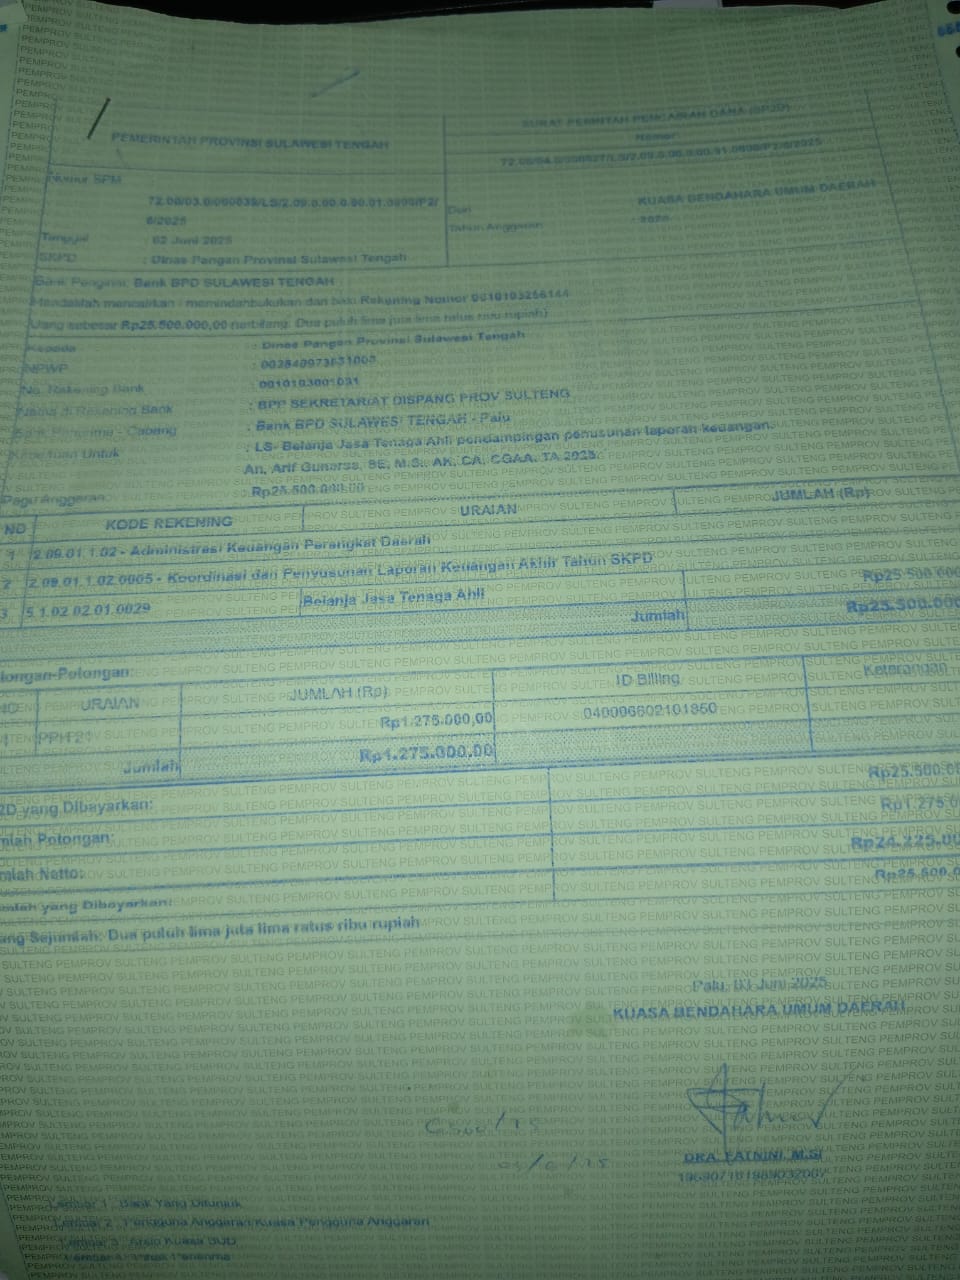 PEMERINTAH PROVINSI SULAWESI TENGAH
SURAT PERINTAH PENCAIRAN DANA (SP2D)
Nomor:
Nomor SPM
6/2025
Tanggal : 02 Juni 2025
SKPD : Dinas Pangan Provinsi Sulawesi Tengah
Dari : KUASA BENDAHARA UMUM DAERAH
Tahun Anggaran : 2025
Bank Pengirim: Bank BPD SULAWESI TENGAH
Hendaklah mencairkan / memindahbukukan dari baki Rekening Nomor 0010103256144
Uang sebesar Rp25.500.000,00 (terbilang: Dua puluh lima juta lima ratus ribu rupiah)
Kepada : Dinas Pangan Provinsi Sulawesi Tengah
NPWP
No. Rekening Bank : 0010103001031
Nama di Rekening Bank : BPP SEKRETARIAT DISPANG PROV SULTENG
Bank Penerima - Cabang : Bank BPD SULAWESI TENGAH - Palu
Keperluan Untuk : LS- Belanja Jasa Tenaga Ahli pendampingan penusunan laporan keuangan.
An. Arif Gunarsa, SE, M.Si. AK, CA, CGAA. TA 2025.
Pagu Anggaran : Rp25.500.000,00
NO KODE REKENING URAIAN JUMLAH (Rp)
1 2.09.01.1.02 - Administrasi Keuangan Perangkat Daerah
2 2.09.01.1.02.0005 - Koordinasi dan Penyusunan Laporan Keuangan Akhir Tahun SKPD
3 5.1.02.02.01.0029 Belanja Jasa Tenaga Ahli Rp25.500.000
Jumlah Rp25.500.000
longan-Potongan:
URAIAN JUMLAH (Rp) ID Billing Keterangan
PPH 21 Rp1.275.000,00 040096602101860
Jumlah Rp1.275.000,00
2D yang Dibayarkan: Rp25.500.00
mlah Potongan: Rp1.275.0
mlah Netto: Rp24.225.00
mlah yang Dibayarkan: Rp25.500.0
ang Sejumlah: Dua puluh lima juta lima ratus ribu rupiah
Palu, 03 Juni 2025
KUASA BENDAHARA UMUM DAERAH
DRA. FATNINI, M.Si
Lembar 1 : Bank Yang Ditunjuk
Lembar 2 : Pengguna Anggaran/Kuasa Pengguna Anggaran
Lembar 3 : Arsip Kuasa BUD